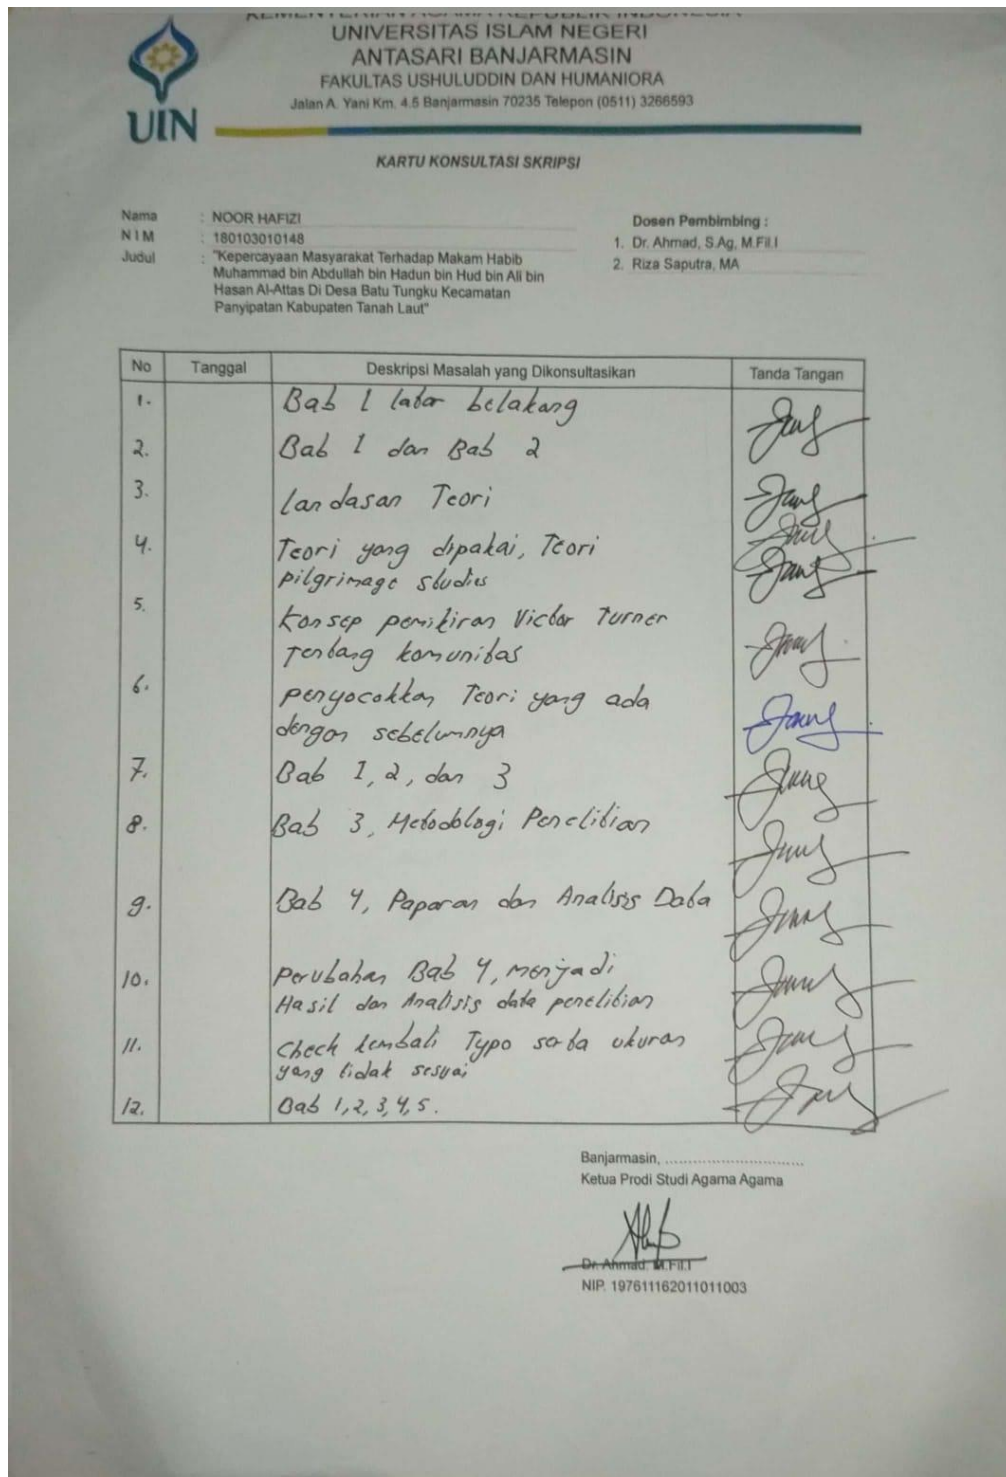 KEMENTERIAN AGAMA REPUBLIK INDONESIA
UNIVERSITAS ISLAM NEGERI
ANTASARI BANJARMASIN
FAKULTAS USHULUDDIN DAN HUMANIORA
Jalan A. Yani Km. 4.5 Banjarmasin 70235 Telepon (0511) 3266593
UIN
KARTU KONSULTASI SKRIPSI
Nama : NOOR HAFIZI
NIM : 180103010148
Judul : "Kepercayaan Masyarakat Terhadap Makam Habib
Muhammad bin Abdullah bin Hadun bin Hud bin Ali bin
Hasan Al-Attas Di Desa Batu Tungku Kecamatan
Panyipatan Kabupaten Tanah Laut"
Dosen Pembimbing :
1. Dr. Ahmad, S.Ag, M.Fil.I
2. Riza Saputra, MA
No Tanggal Deskripsi Masalah yang Dikonsultasikan Tanda Tangan
1. Bab 1 latar belakang
2. Bab 1 dan Bab 2
3. landasan Teori
4. Teori yang dipakai, Teori
pilgrimage studies
5. Konsep pemikiran Victor Turner
Tentang komunitas
6. penyocokkan Teori yang ada
dengan sebelumnya
7. Bab 1, 2, dan 3
8. Bab 3, Metodologi Penelitian
9. Bab 4, Paparan dan Analisis Data
10. perubahan Bab 4, menjadi
Hasil dan Analisis data penelitian
11. Check kembali Typo serta ukuran
yang tidak sesuai
12. Bab 1,2,3,4,5.
Banjarmasin, ..............................
Ketua Prodi Studi Agama Agama
Dr. Ahmad, M.Fil.I
NIP. 197611162011011003